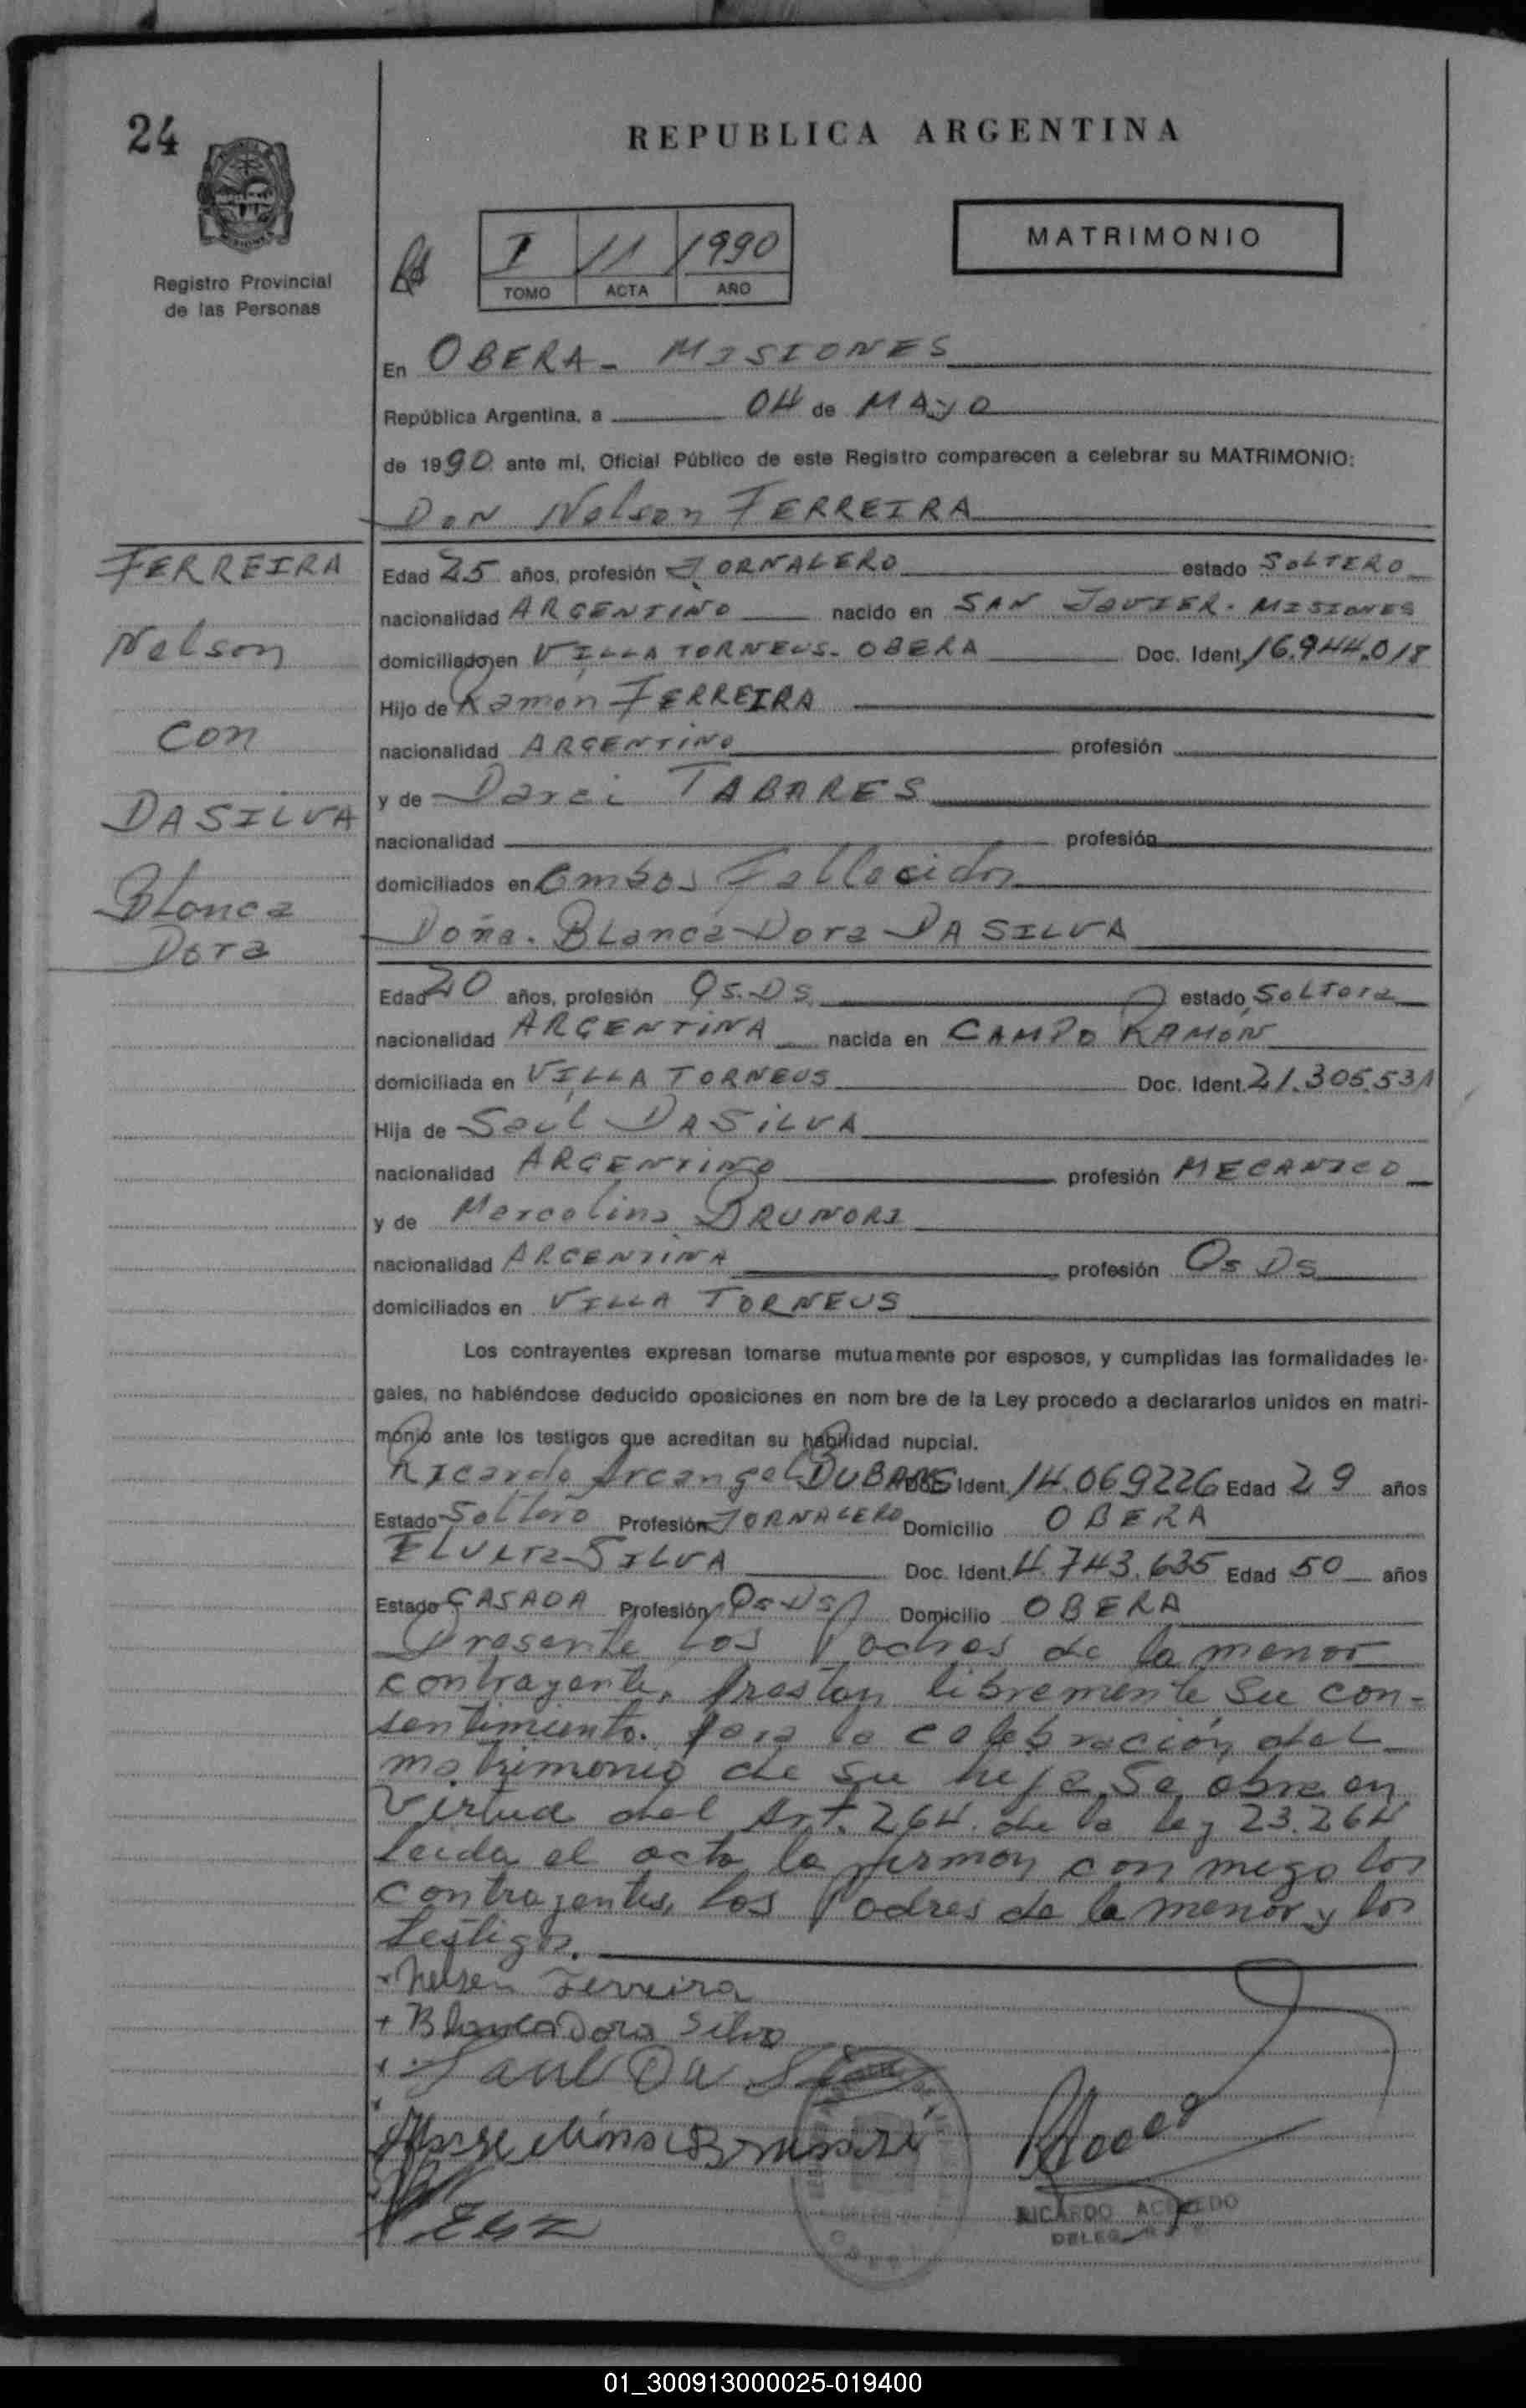 24
REPUBLICA ARGENTINA
Registro Provincial
de las Personas
I 11 1990
TOMO ACTA AÑO
MATRIMONIO
En OBERA - MISIONES
República Argentina, a 04 de MAYO
de 1990 ante mi, Oficial Público de este Registro comparecen a celebrar su MATRIMONIO:
DON Nelson FERREIRA
FERREIRA
Nelson
con
DASILVA
Blanca
Dora
Edad 25 años, profesión JORNALERO estado SOLTERO
nacionalidad ARGENTINO nacido en SAN JAVIER. MISIONES
domiciliado en VILLA TORNEUS. OBERA Doc. Ident. 16.944.018
Hijo de Ramón FERREIRA
nacionalidad ARGENTINO profesión
y de Darci TABARES
nacionalidad profesión
domiciliados en ambos Fallecidos
Doña. Blanca Dora DASILVA
Edad 20 años, profesión Qs. Ds. estado Soltera
nacionalidad ARGENTINA nacida en CAMPO RAMÓN
domiciliada en VILLA TORNEUS Doc. Ident. 21.305.531
Hija de Saúl DASILVA
nacionalidad ARGENTINO profesión MECANICO
y de Marcolina BRUNORI
nacionalidad ARGENTINA profesión Qs Ds
domiciliados en VILLA TORNEUS
Los contrayentes expresan tomarse mutuamente por esposos, y cumplidas las formalidades le-
gales, no habiéndose deducido oposiciones en nom bre de la Ley procedo a declararlos unidos en matri-
monio ante los testigos que acreditan su habilidad nupcial.
Ricardo Arcangel Doc. Ident. 14.069226 Edad 29 años
Estado Soltero Profesión JORNALERO Domicilio OBERA
Elvira SILVA Doc. Ident. 4.743.635 Edad 50 años
Estado CASADA Profesión Qs Ds Domicilio OBERA
Presente los Padres de la menor
contrayente, prestan libremente su con-
sentimiento. para la celebración del
matrimonio de su hija, Se obra en
virtud del Art. 264. de la ley 23.264
Leida el acta la firman con migo los
contrayentes, los Padres de la menor y los
testigos.
+ Nelsen Ferreira
+ Blanca Dora Silva
x Saul Da Silva
x Marcelina Brunori
RICARDO ACEVEDO
DELEG.
01_300913000025-019400